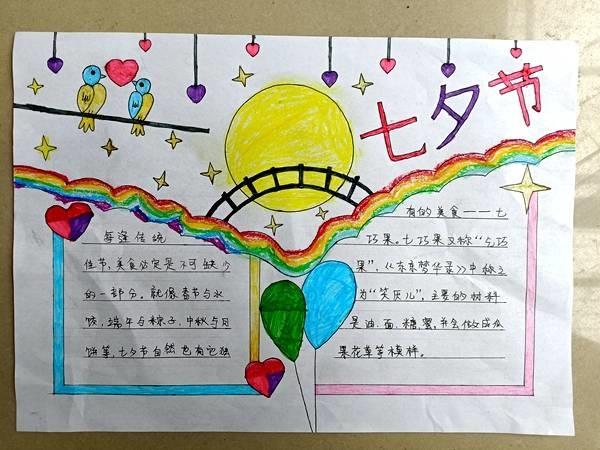 七夕节
每逢传统
佳节，美食必定是不可缺少
的一部分。就像春节与水
饺，端午与粽子，中秋与月
饼等，七夕节自然也有它独
有的美食——七
巧果。七巧果又称“乞巧
果”，《东京梦华录》中称之
为“笑厌儿”。主要的材料
是油、面、糖、蜜。并会做成瓜
果花草等模样。